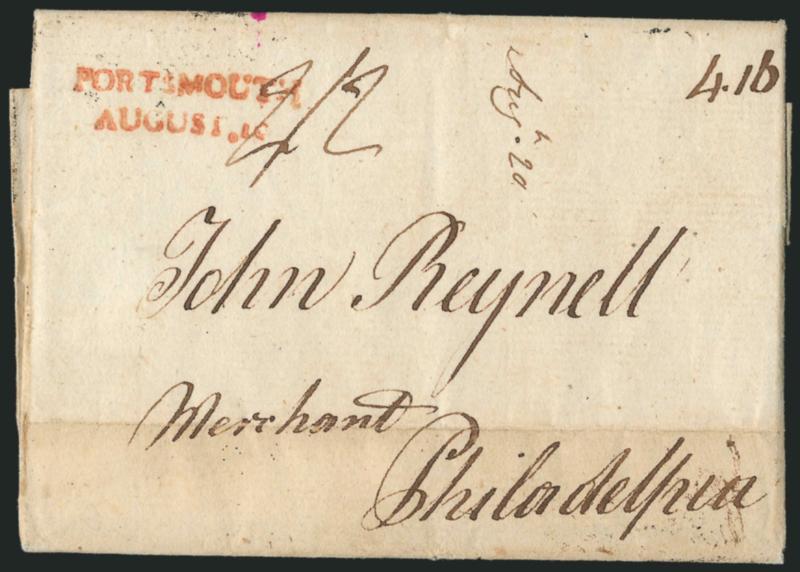 PORTSMOUTH
AUGUST.16
2/2
Augt. 20
4.16
John Reynell
Merchant
Philadelphia